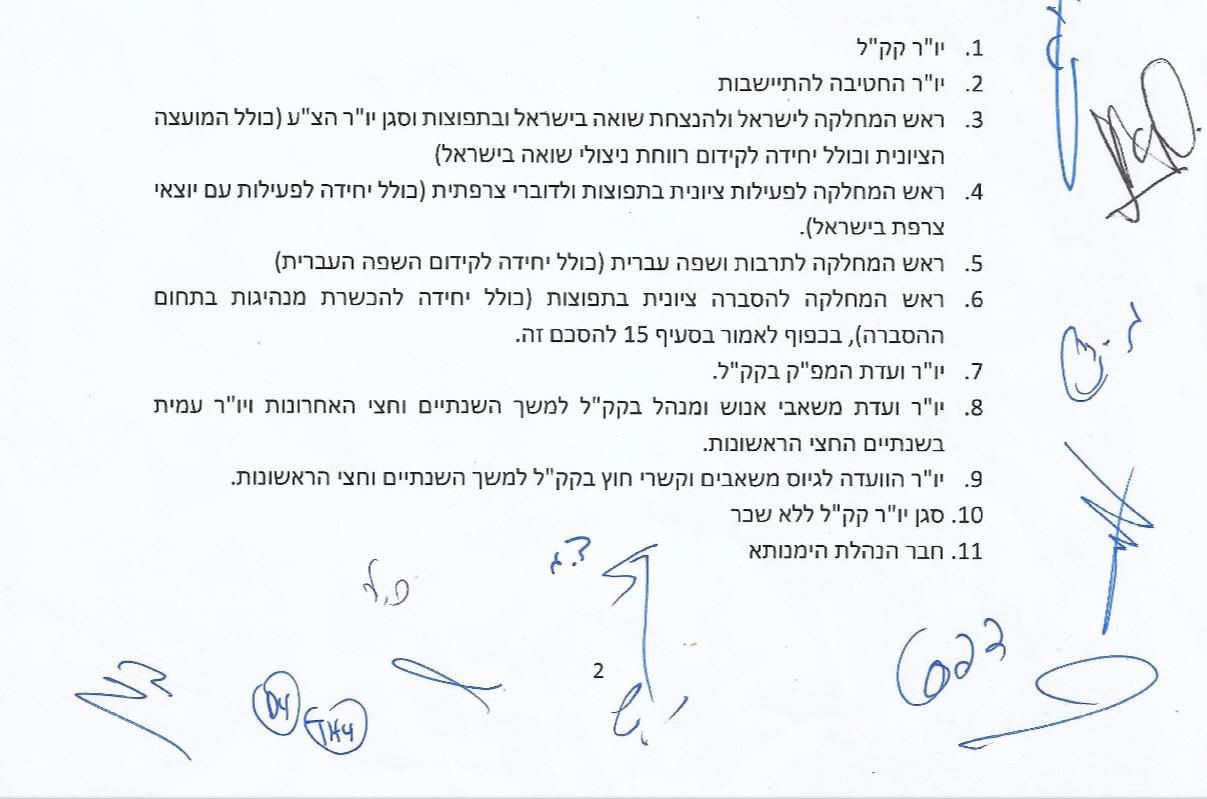 1. יו"ר קק"ל
2. יו"ר החטיבה להתיישבות
3. ראש המחלקה לישראל ולהנצחת שואה בישראל ובתפוצות וסגן יו"ר הצ"ע (כולל המועצה
הציונית וכולל יחידה לקידום רווחת ניצולי שואה בישראל)
4. ראש המחלקה לפעילות ציונית בתפוצות ולדוברי צרפתית (כולל יחידה לפעילות עם יוצאי
צרפת בישראל).
5. ראש המחלקה לתרבות ושפה עברית (כולל יחידה לקידום השפה העברית)
6. ראש המחלקה להסברה ציונית בתפוצות (כולל יחידה להכשרת מנהיגות בתחום
ההסברה), בכפוף לאמור בסעיף 15 להסכם זה.
7. יו"ר ועדת המפ"ק בקק"ל.
8. יו"ר ועדת משאבי אנוש ומנהל בקק"ל למשך השנתיים וחצי האחרונות ויו"ר עמית
בשנתיים החצי הראשונות.
9. יו"ר הוועדה לגיוס משאבים וקשרי חוץ בקק"ל למשך השנתיים וחצי הראשונות.
10. סגן יו"ר קק"ל ללא שכר
11. חבר הנהלת הימנותא
2